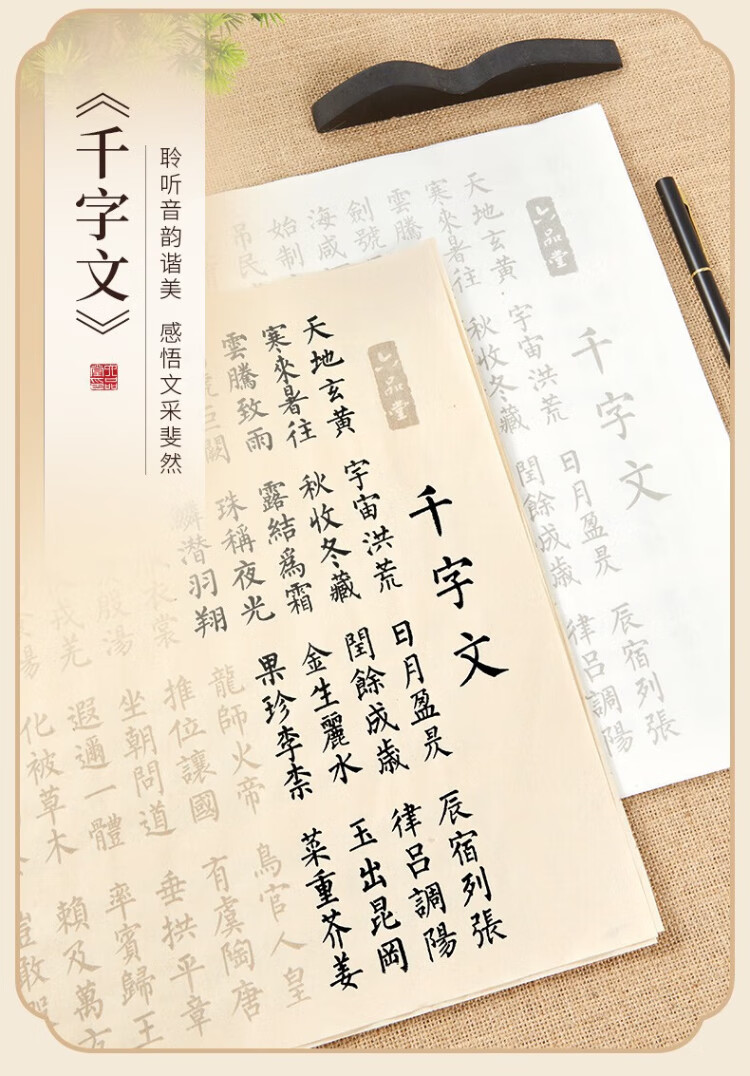 《千字文》
聆听音韵谐美 感悟文采斐然
六品堂
千字文
天地玄黄 宇宙洪荒 日月盈昃 辰宿列張
寒來暑往 秋收冬藏 閏餘成歲 律吕調陽
雲騰
劍號
海咸
始制
吊民
六品堂
千字文
天地玄黄 宇宙洪荒 日月盈昃 辰宿列張
寒來暑往 秋收冬藏 閏餘成歲 律吕調陽
雲騰致雨 露結爲霜 金生麗水 玉出昆岡
號巨闕 珠稱夜光 果珍李柰 菜重芥姜
鱗潛羽翔 龍師火帝 鳥官人皇
衣裳 推位讓國 有虞陶唐
殷湯 坐朝問道 垂拱平章
戎羌 遐邇一體 率賓歸王
化被草木 賴及萬方
豈敢